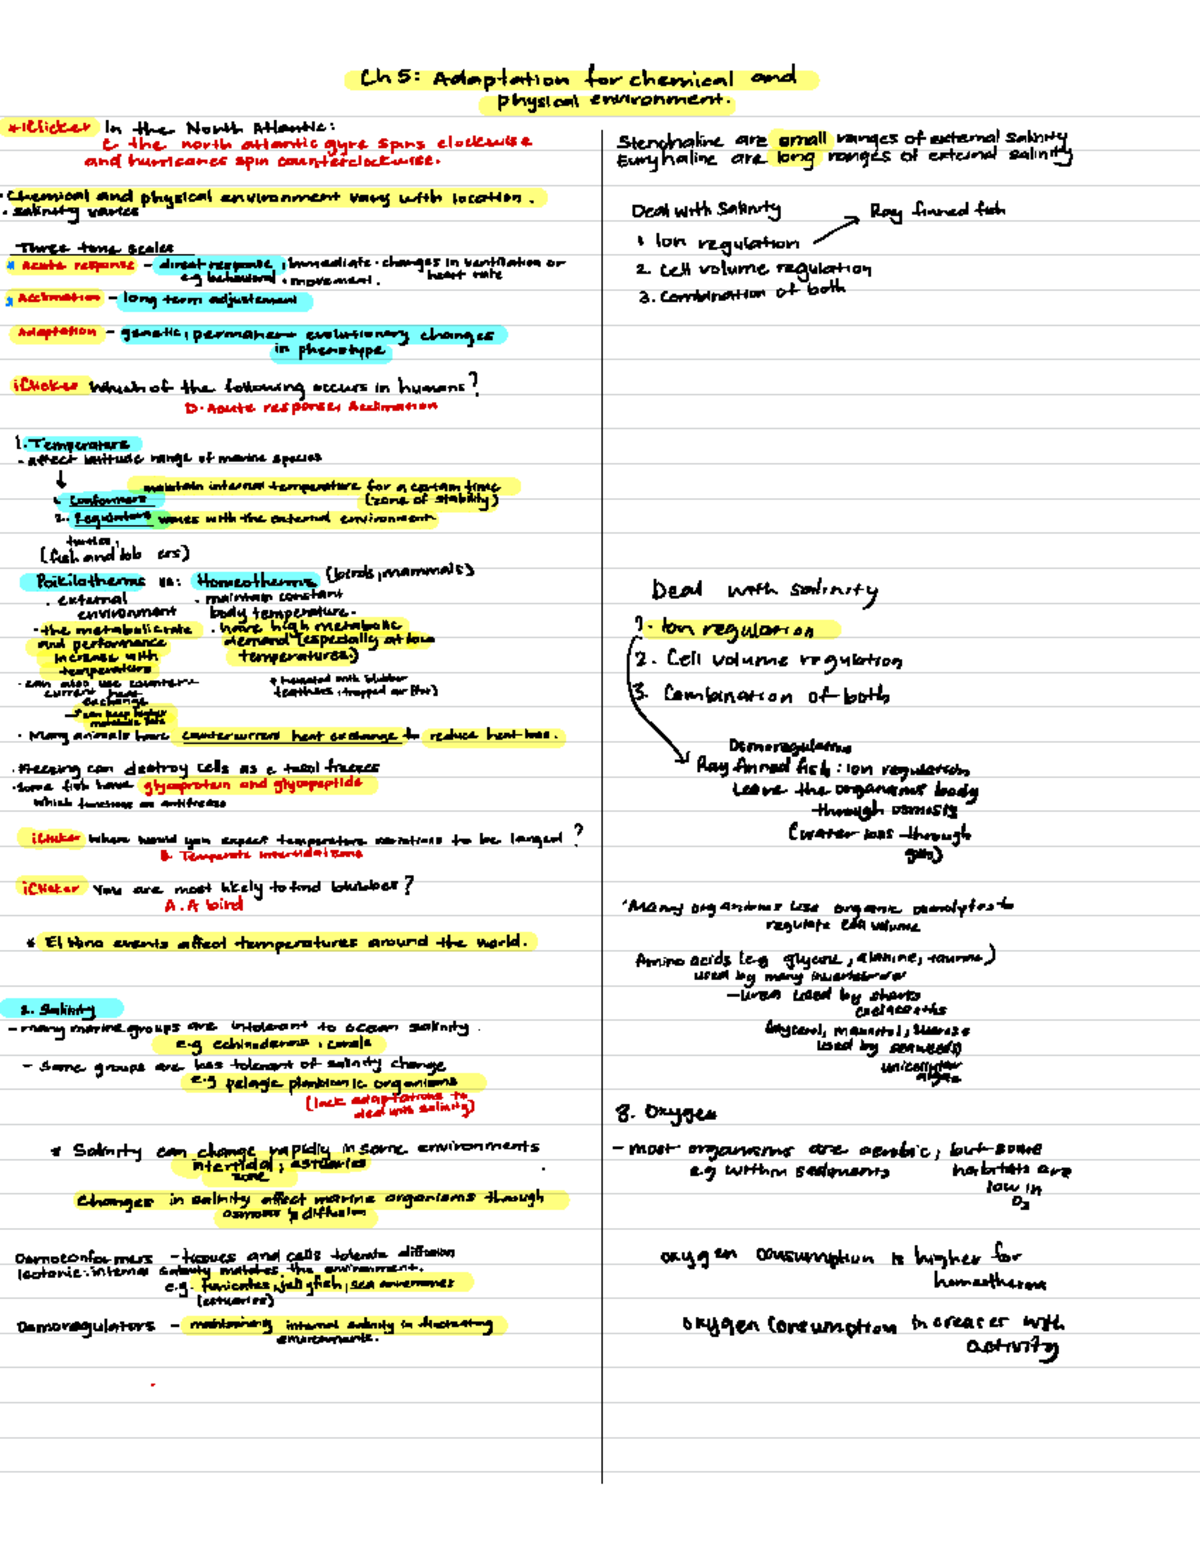 Ch 5: Adaptation for chemical and
physical environment.
*iClicker In the North Atlantic:
C the north atlantic gyre spins clockwise
and hurricanes spin counterclockwise.
· Chemical and physical environment vary with location.
· salinity varies
Three time scales
* Acute response - direct response, immediate · changes in ventilation or
e.g behavioral · movement. heart rate
Acclimation - long term adjustement
Adaptation - genetic, permanent evolutionary changes
in phenotype
iClicker Which of the following occurs in humans?
D. Acute response, Acclimation
1. Temperature
- affect latitude range of marine species
maintain internal temperature for a certain time
1. Conformers (zone of stability)
2. Regulators varies with the external environment
turtles,
(fish and lob ers)
Poikilotherms vs: Homeotherms (birds, mammals)
· external · maintain constant
environment body temperature.
· the metabolic rate · have high metabolic
and performance demand (especially at low
increase with temperatures.)
temperature
· can also use counter- * insulated with blubber
current heat feathers, trapped air (fur)
exchange
→ * can keep higher
metabolic rate
· Many animals have countercurrent heat exchange to reduce heat loss.
· Freezing can destroy cells as c tasol freezes
· Some fish have glycoprotein and glycopeptide
which functions as antifreeze
iClicker Where would you expect temperature variations to be largest?
B. Temperate intertidal zone
iClicker You are most likely to find blubber?
A. A bird
* El Nino events affect temperatures around the world.
2. Salinity
- many marine groups are intolerant to ocean salinity.
e.g echinoderms, corals
- Some groups are less tolerant of salinity change
e.g pelagic planktonic organisms
(lack adaptations to
deal with salinity)
* Salinity can change rapidly in some environments
intertidal, estuaries
zone
Changes in salinity affect marine organisms through
osmosis & diffusion
Osmoconformers - tissues and cells tolerate diffusion
Isotonic: internal salinity matches the environment.
e.g. tunicates, jellyfish, sea anemones
(estuaries)
Osmoregulators - maintaining internal salinity in fluctuating
environments.
Stenohaline are small ranges of external salinity
Euryhaline are long ranges of external salinity
Deal with Salinity → Ray finned fish
1 Ion regulation
2. Cell volume regulation
3. Combination of both
Deal with salinity
1. Ion regulation
2. Cell volume regulation
3. Combination of both
Osmoregulators
Ray finned fish: Ion regulation
Leave the organisms body
through osmosis
(water ions through
gills)
· Many organisms use organic osmolytes to
regulate cell volume
Amino acids (e.g glycine, alanine, taurine)
used by many invertebrates
- Urea used by sharks
coelacanths
Glycerol, mannitol, sucrose
used by seaweeds
unicellular
algae
8. Oxygen
- most organisms are aerobic, but some
e.g within sediments habitats are
low in
O2
Oxygen consumption is higher for
homeotherms
Oxygen Consumption increases with
activity